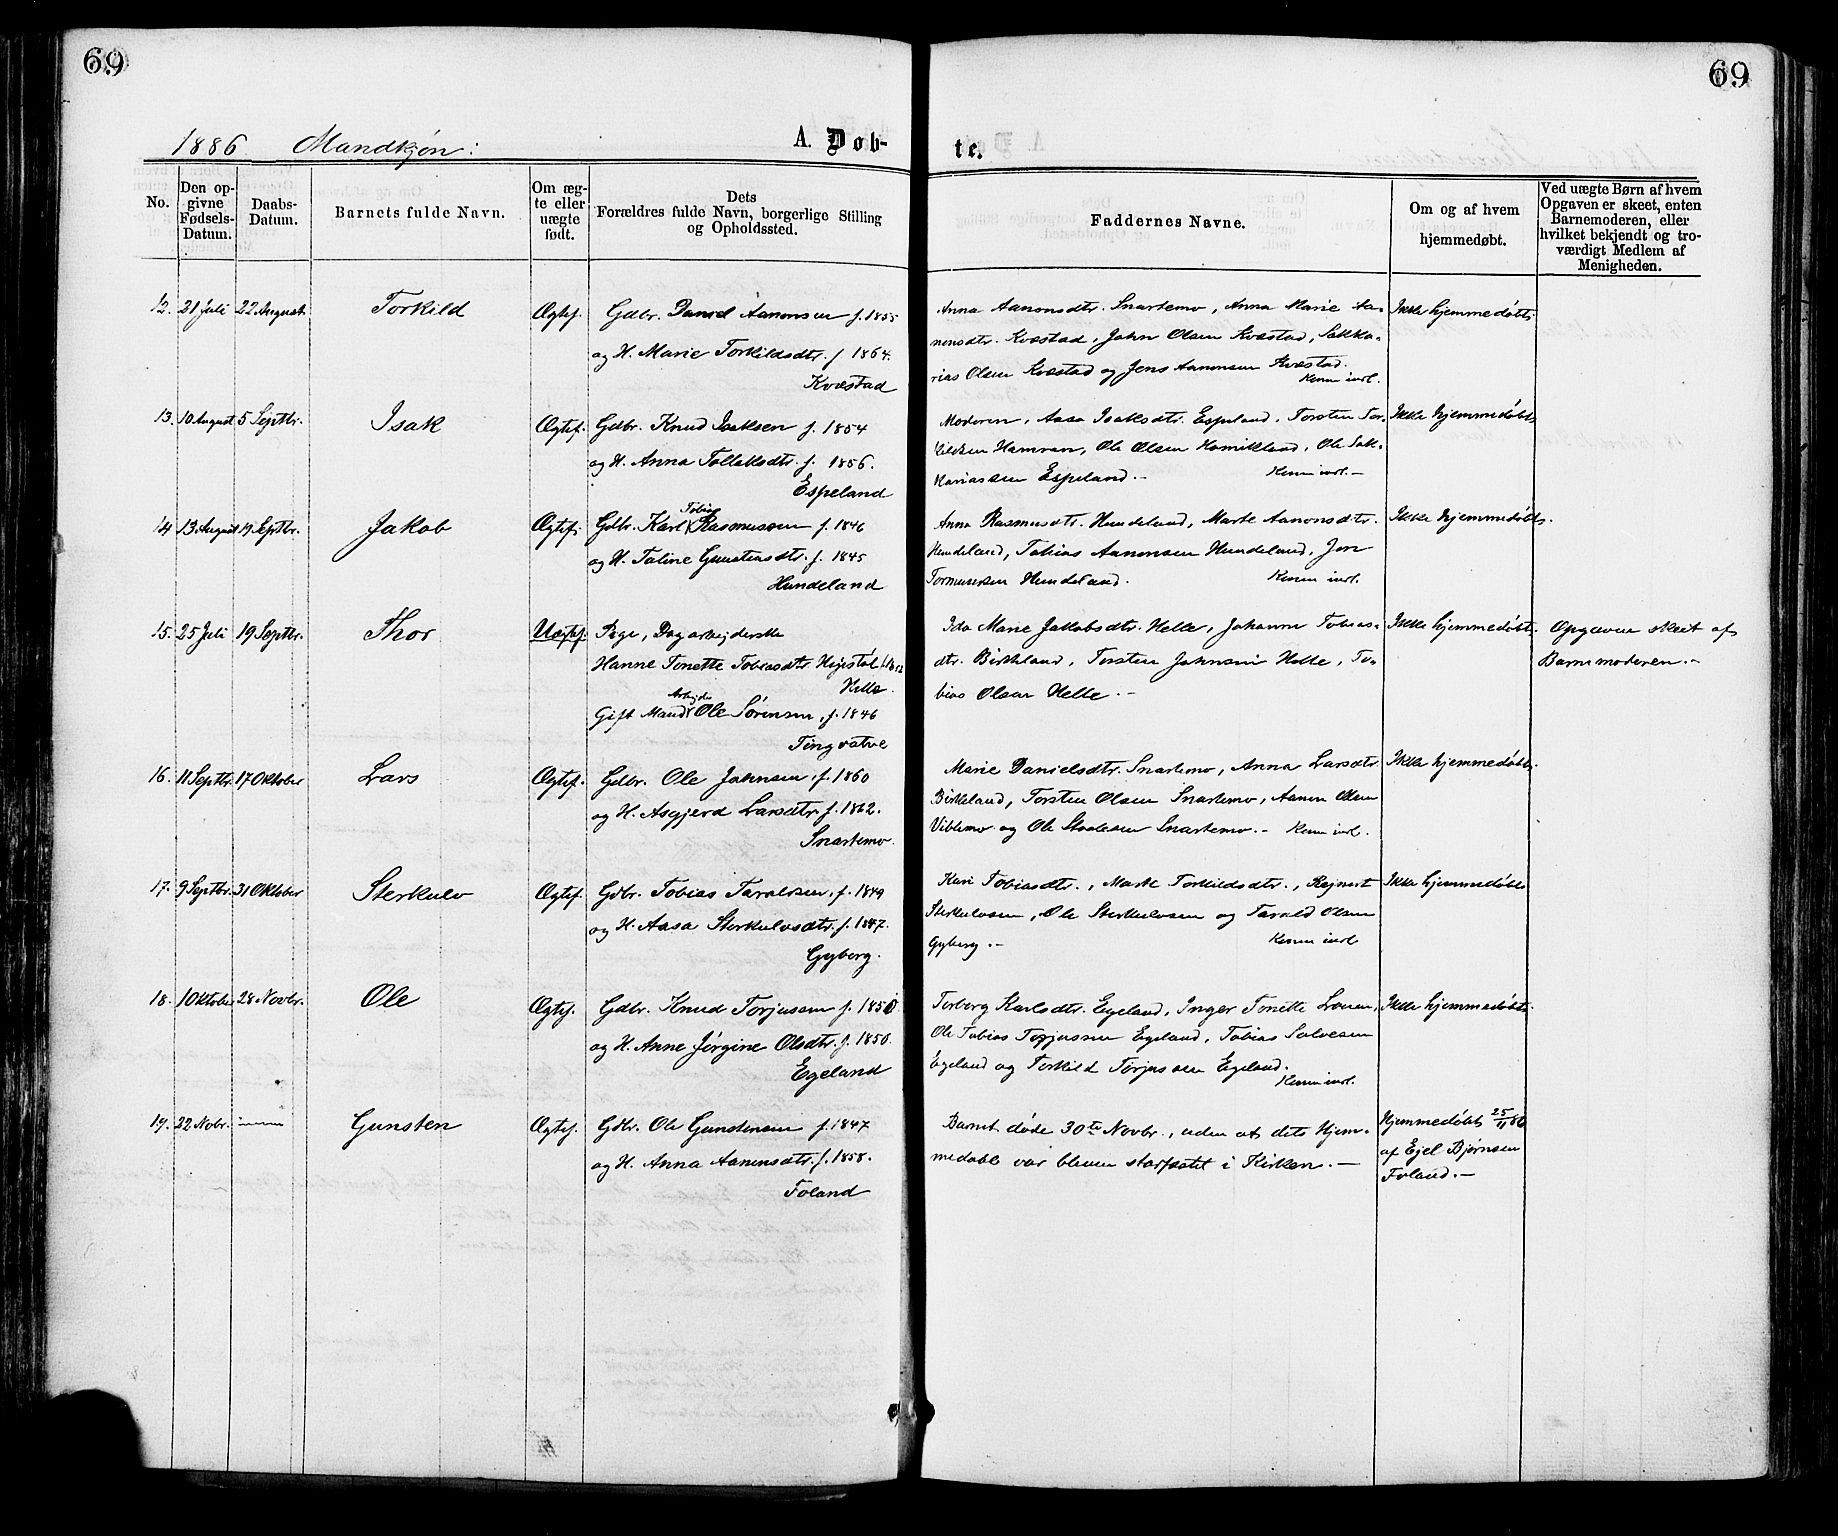 69
69
1886 Mandkjøn:
A. Døb-
te.
No.
Den op-
givne
Fødsels-
Datum.
Daabs-
Datum.
Barnets fulde Navn.
Om æg-
te eller
uægte
født.
Dets
Forældres fulde Navn, borgerlige Stilling
og Opholdssted.
Faddernes Navne.
Om og af hvem
hjemmedøbt.
Ved uægte Børn af hvem
Opgaven er skeet, enten
Barnemoderen, eller
hvilket bekjendt og tro-
værdigt Medlem af
Menigheden.
12. 21 Juli 22 August Torkild Ægtef. Gdbr. Daniel Aanonsen f. 1855
og H. Marie Torkildsdtr. f. 1864.
Kvæstad
Anna Aanonsdtr. Snartemo, Anna Marie Aa-
nensdtr. Kvæstad, John Olsen Kvæstad, Sakka-
rias Olsen Kvæstad og Jens Aanonsen Kvæstad.
Ikke hjemmedøbt.
13. 10 August 5 Septbr. Isak Ægtef. Gdbr. Knud Isaksen f. 1854
og H. Anna Tollaksdtr. f. 1856.
Espeland
Moderen, Aasa Isaksdtr. Espeland, Torsten Tor-
kildsen Hamran, Ole Olsen Homikland, Ole Sak-
kariassen Espeland.
Ikke hjemmedøbt.
14 13 August 19 Septbr. Jakob Ægtef. Gdbr. Karl Tobias Rasmussen f. 1846
og H. Taline Gunstensdtr. f. 1845
Hundeland
Anna Rasmusdtr. Hundeland, Marte Aanonsdtr.
Hundeland, Tobias Aanonsen Hundeland, Jon
Hundeland.
Ikke hjemmedøbt.
15. 25 Juli 19 Septbr. Thor Uægtef. Pige, Dagarbejderske
Hanne Tonette Tobiasdtr. Hægestøl
Helle.
Gift Mand Arbejder Ole Sørensen, f. 1846
Tingvatne
Ida Marie Jakobsdtr. Helle, Johanne Tobias-
dtr. Birkeland, Torsten Johnsen Helle, To-
bias Olsen Helle.
Ikke hjemmedøbt.
Opgaven skeet af
Barnemoderen.
16. 11 Septbr. 17 Oktober Lars Ægtef. Gdbr. Ole Johnsen, f. 1860
og H. Asgjerd Larsdtr. f. 1862.
Snartemo.
Marie Danielsdtr. Snartemo, Anna Larsdtr.
Birkeland, Torsten Olsen Snartemo, Aanen Olsen
Viblemo og Ole Staalesen Snartemo.
Ikke hjemmedøbt.
17. 9 Septbr. 31 Oktober Sterkulv Ægtef. Gdbr. Tobias Taraldsen, f. 1849
og H. Aasa Sterkulvsdtr. f. 1847.
Gyberg.
Kari Tobiasdtr., Marte Torkildsdtr., Rejnert
Sterkulvsen, Ole Sterkulvsen og Tarald Olsen
Gyberg.
Ikke hjemmedøbt.
18. 1 Oktober 28 Novbr. Ole Ægtef. Gdbr. Knud Torjussen f. 1850
og H. Anne Jørgine Olsdtr. f. 1850.
Egeland
Torborg Karlsdtr. Egeland, Inger Tonette
Ole Tobias Torjussen Egeland, Tobias Salvesen
Egeland og Torkild Torjussen Egeland.
Ikke hjemmedøbt.
19. 22 Novbr. Gunsten Ægtef. Gdbr. Ole Gunstensen f. 1847
og H. Anna Aanensdtr. f. 1858.
Foland
Barnet døde 30te Novbr., uden at dets Hjem-
medaab var bleven stadfæstet i Kirken.
Hjemmedøbt 25/11 86
af Ejel Bjørnsen
Foland.